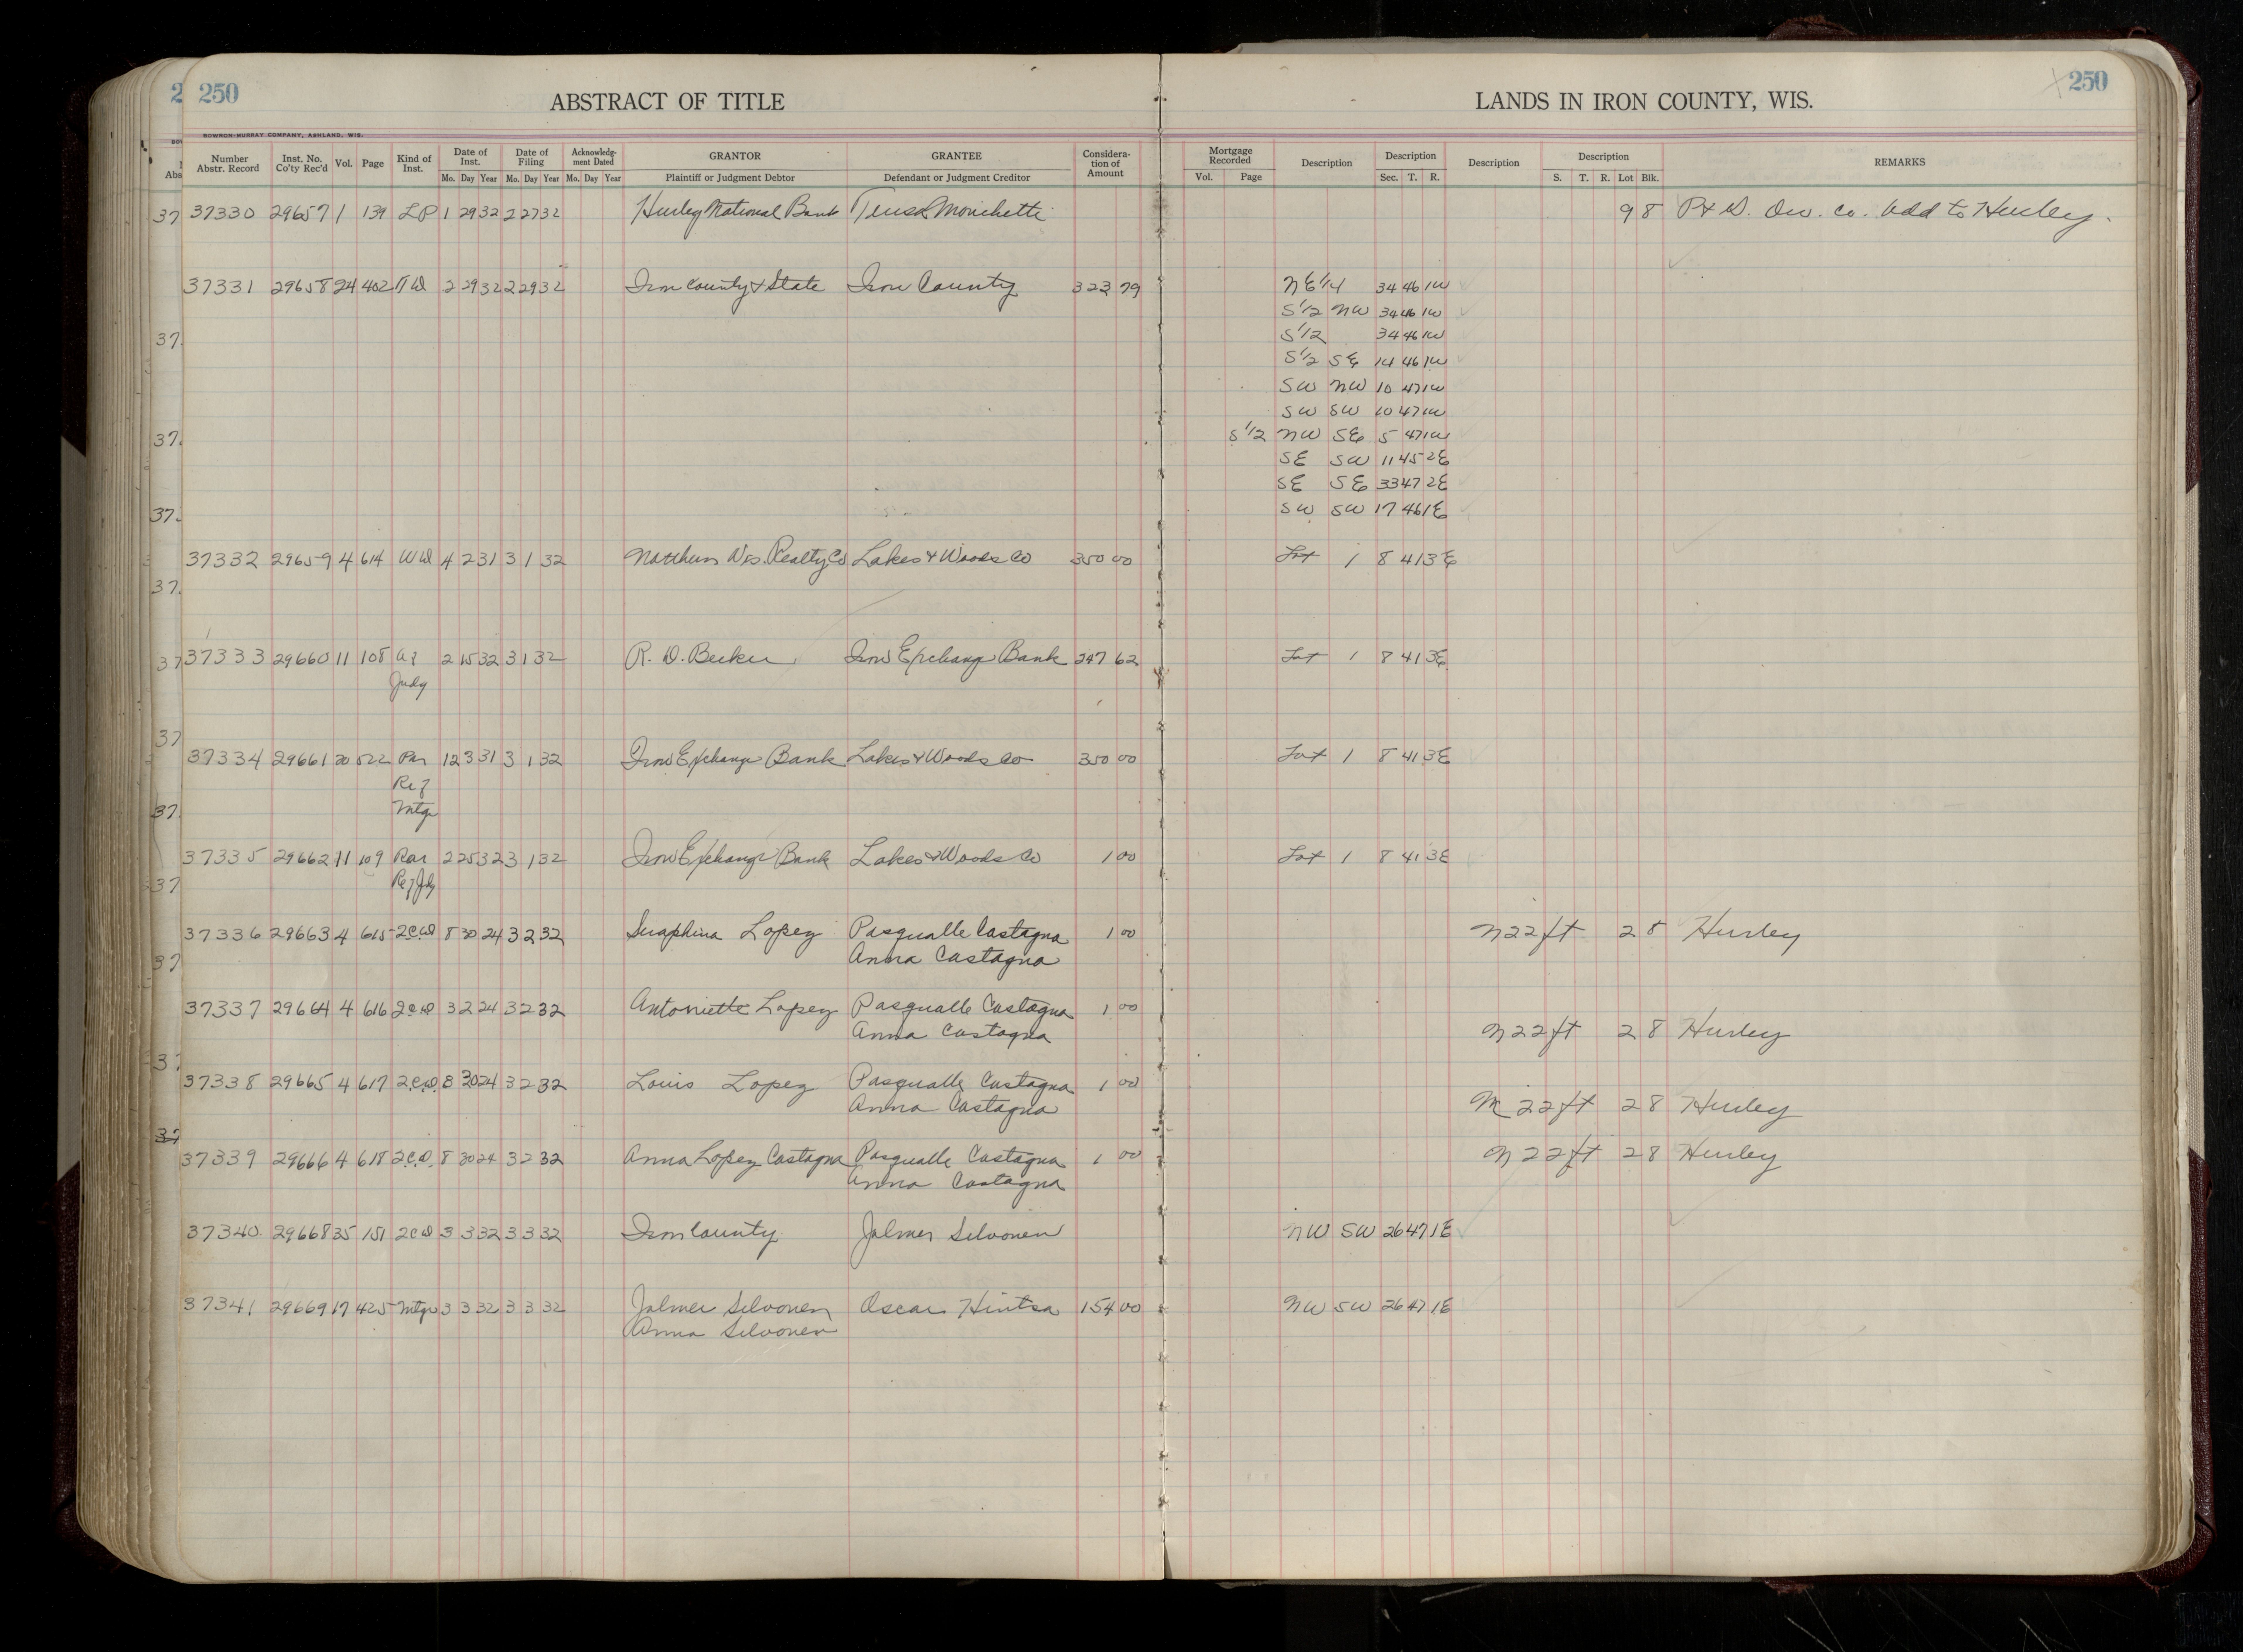 2 250 ABSTRACT OF TITLE LANDS IN IRON COUNTY, WIS. 250
BOWRON-MURRAY COMPANY, ASHLAND, WIS.
Number Abstr. Record Inst. No. Co'ty Rec'd Vol. Page Kind of Inst. Date of Inst. Date of Filing Acknowledg-ment Dated GRANTOR GRANTEE Considera-tion of Amount Mortgage Recorded Description Description Description Description REMARKS
Mo. Day Year Mo. Day Year Mo. Day Year Plaintiff or Judgment Debtor Defendant or Judgment Creditor Vol. Page Sec. T. R. S. T. R. Lot Blk.
37330 29657 1 139 LP 1 29 32 2 27 32 Hurley National Bank 9 8 Add to Hurley.
37331 29658 24 402 2 29 32 2 29 32 Iron County & State Iron County 323 79 NE 1/4 34 46 1W
S 1/2 NW 34 46 1W
S 1/2 34 46 1W
S 1/2 SE 14 46 1W
SW NW 10 47 1W
SW SW 10 47 1W
S 1/2 NW SE 5 47 1W
SE SW 11 45 2E
SE SE 33 47 2E
SW SW 17 46 1E
37332 29659 4 614 WD 4 2 31 3 1 32 Northern Wis. Realty Co Lakes & Woods Co 350 00 Lot 1 8 41 3E
37333 29660 11 108 2 15 32 3 1 32 R. D. Becker Iron Exchange Bank 247 62 Lot 1 8 41 3E
Judg
37334 29661 20 522 Par 12 3 31 3 1 32 Iron Exchange Bank Lakes & Woods Co 350 00 Lot 1 8 41 3E
Mtge
37335 29662 11 109 Par 2 25 32 3 1 32 Iron Exchange Bank Lakes & Woods Co 1 00 Lot 1 8 41 3E
37336 29663 4 615 2CD 8 30 24 3 2 32 Seraphina Lopez Pasqualle Castagna 1 00 N 22 ft 2 8 Hurley
Anna Castagna
37337 29664 4 616 2CD 3 2 24 3 2 32 Antoniette Lopez Pasqualle Castagna 1 00
Anna Castagna N 22 ft 2 8 Hurley
37338 29665 4 617 2CD 8 30 24 3 2 32 Louis Lopez Pasqualle Castagna 1 00
Anna Castagna N 22 ft 2 8 Hurley
37339 29666 4 618 2CD 8 30 24 3 2 32 Anna Lopez Castagna Pasqualle Castagna 1 00 N 22 ft 2 8 Hurley
Anna Castagna
37340 29668 35 151 2CD 3 3 32 3 3 32 Iron County Jalmer Silvonen NW SW 26 47 1E
37341 29669 17 425 Mtge 3 3 32 3 3 32 Jalmer Silvonen Oscar Hintsa 154 00 NW SW 26 47 1E
Anna Silvonen